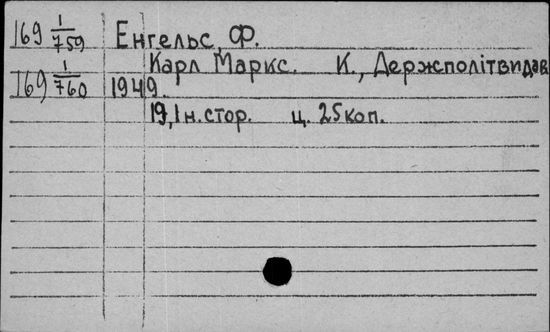 І69 1/759 Енгельс, Ф.
Карл Маркс. К., Держполітвидав
І69 1/760 1949.
19, 1 н. стор. ц. 25 коп.